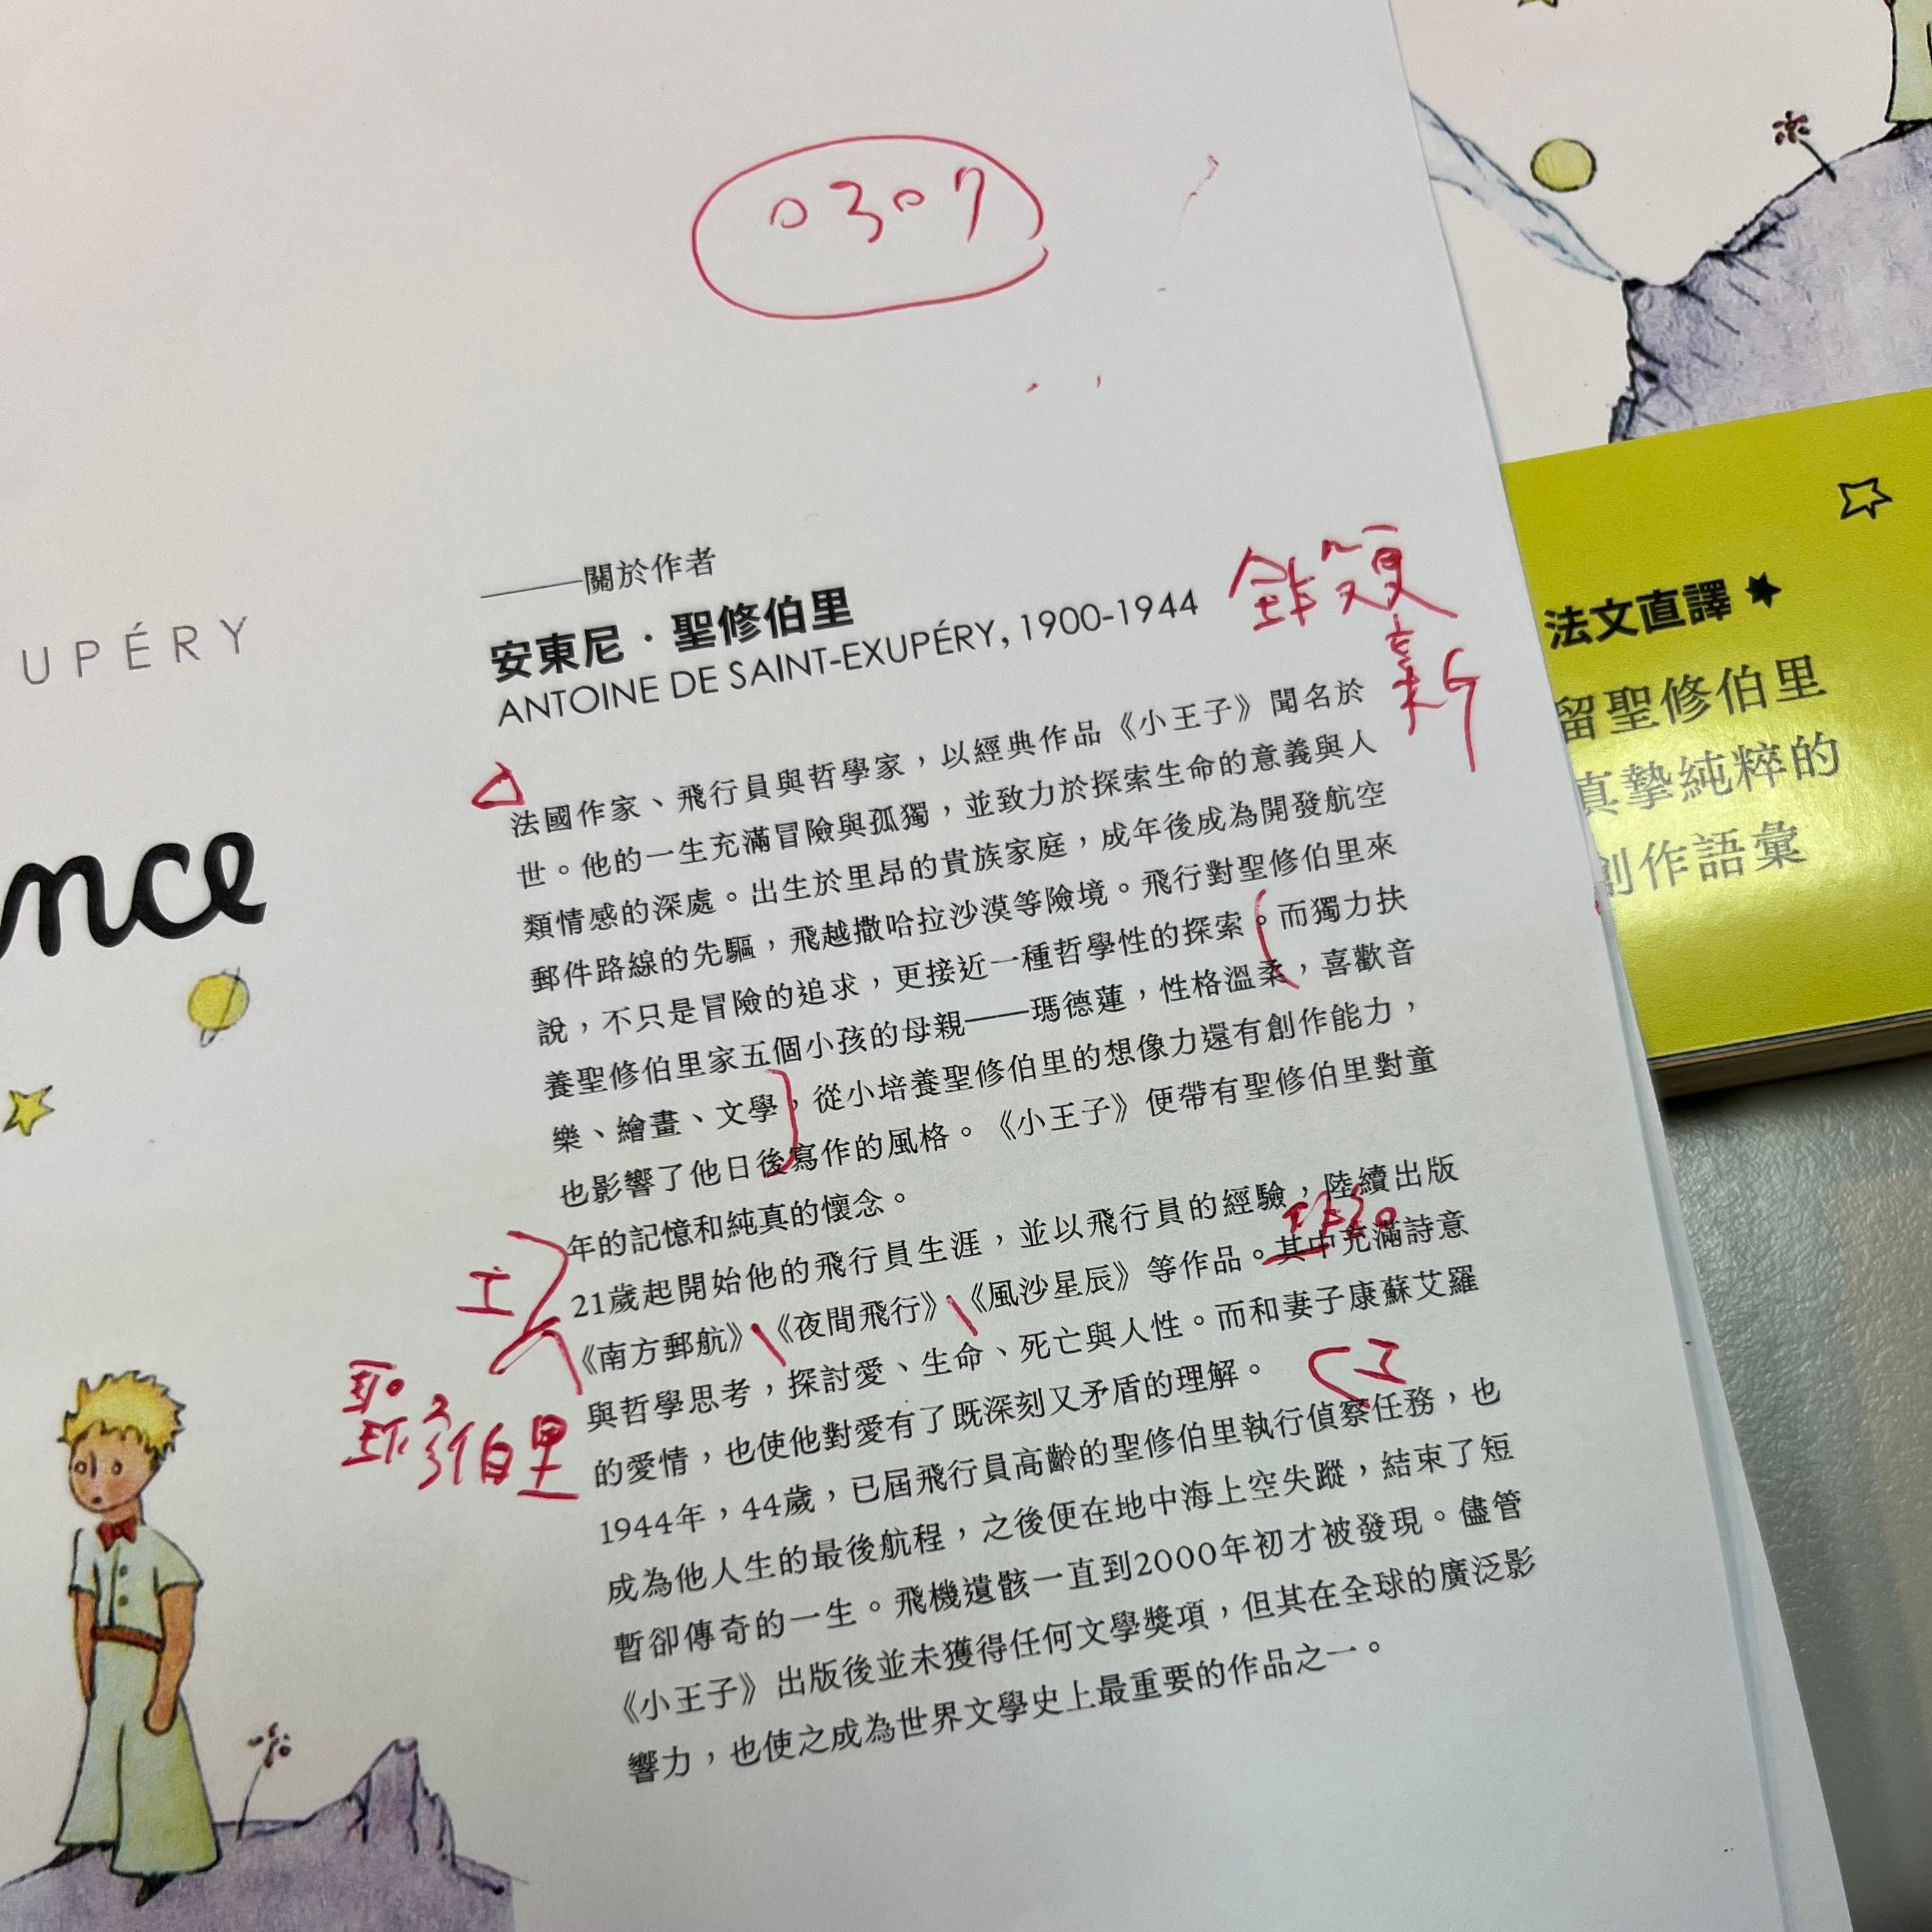 0307
UPÉRY
nce
——關於作者
安東尼・聖修伯里
ANTOINE DE SAINT-EXUPÉRY, 1900-1944
法國作家、飛行員與哲學家，以經典作品《小王子》聞名於
世。他的一生充滿冒險與孤獨，並致力於探索生命的意義與人
類情感的深處。出生於里昂的貴族家庭，成年後成為開發航空
郵件路線的先驅，飛越撒哈拉沙漠等險境。飛行對聖修伯里來
說，不只是冒險的追求，更接近一種哲學性的探索。而獨力扶
養聖修伯里家五個小孩的母親——瑪德蓮，性格溫柔，喜歡音
樂、繪畫、文學，從小培養聖修伯里的想像力還有創作能力，
也影響了他日後寫作的風格。《小王子》便帶有聖修伯里對童
年的記憶和純真的懷念。
21歲起開始他的飛行員生涯，並以飛行員的經驗，陸續出版
《南方郵航》、《夜間飛行》、《風沙星辰》等作品。其中充滿詩意
與哲學思考，探討愛、生命、死亡與人性。而和妻子康蘇艾羅
的愛情，也使他對愛有了既深刻又矛盾的理解。
聖修伯里
1944年，44歲，已屆飛行員高齡的聖修伯里執行偵察任務，也
成為他人生的最後航程，之後便在地中海上空失蹤，結束了短
暫卻傳奇的一生。飛機遺骸一直到2000年初才被發現。儘管
《小王子》出版後並未獲得任何文學獎項，但其在全球的廣泛影
響力，也使之成為世界文學史上最重要的作品之一。
法文直譯
留聖修伯里
真摯純粹的
創作語彙